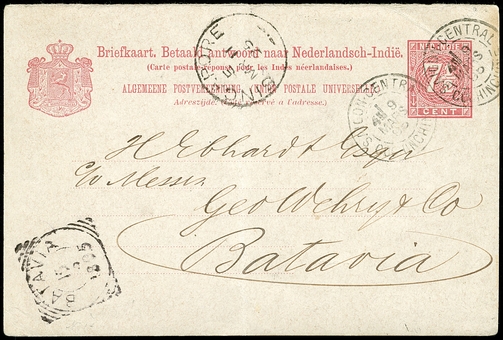 Briefkaart. Betaald Antwoord naar Nederlandsch-Indië.
(Carte postale-réponse pour les Indes néerlandaises.)
ALGEMEENE POSTVEREENIGING (UNION POSTALE UNIVERSELLE)
Adreszijde. (Côté réservé à l'adresse.)
NED. INDIE
7½
CENT
SINGAPORE
CENTRAL
H Ebhardt Esqu
c/o Messrs
Geo Wehry & Co
Batavia
BATAVIA
1895